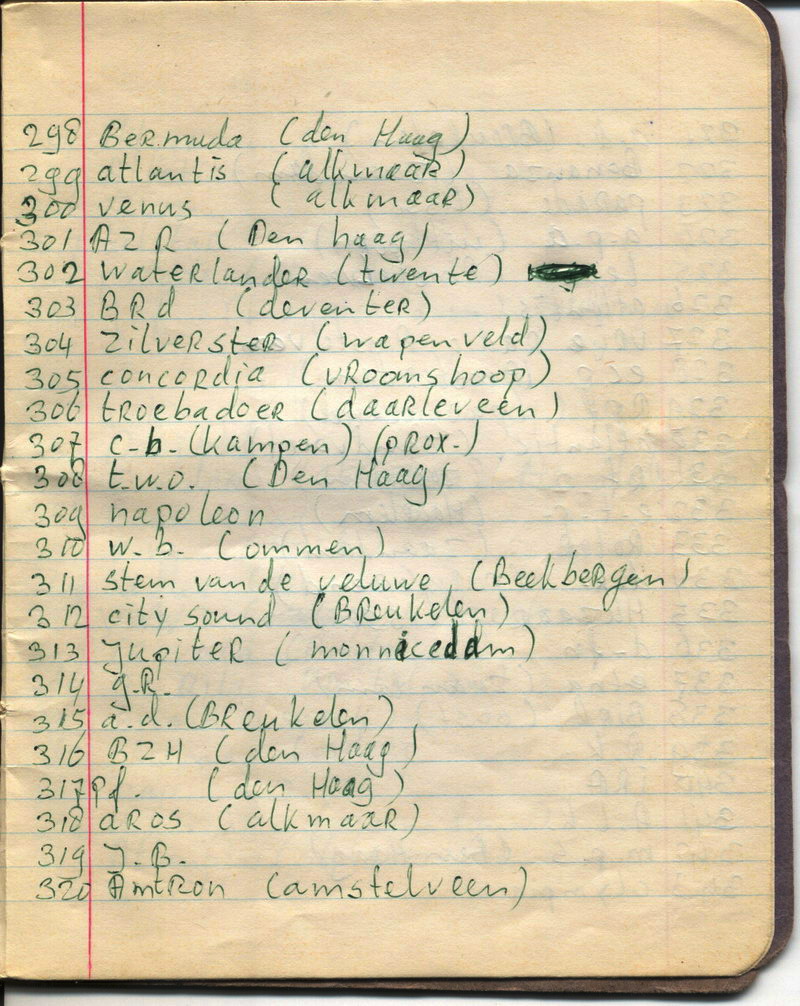 298 Bermuda (den Haag)
299 atlantis (alkmaar)
300 venus (alkmaar)
301 AZR (Den haag)
302 waterlander (twente)
303 BRd (deventer)
304 zilverster (wapenveld)
305 concordia (vroomshoop)
306 troebadoer (daarleveen)
307 c-b. (kampen) (prox.)
308 t.w.o. (Den Haag)
309 napoleon
310 w.b. (ommen)
311 stem van de veluwe (Beekbergen)
312 city sound (Breukelen)
313 Jupiter (monnicedam)
314 g.R.
315 a.d. (Breukelen)
316 BZH (den Haag)
317 pf. (den Haag)
318 aros (alkmaar)
319 J.B.
320 Amtron (amstelveen)